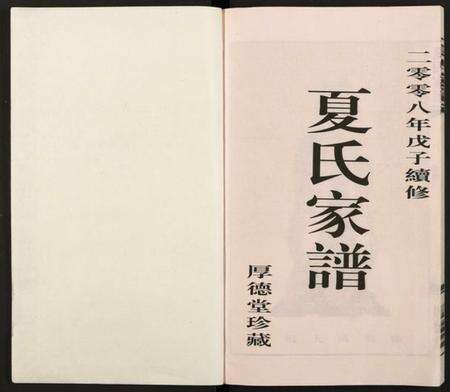 二零零八年戊子續修
夏氏家譜
厚德堂珍藏